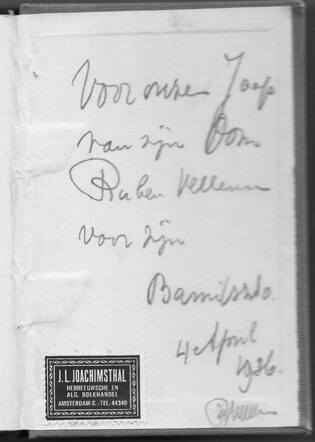 Voor onzen Jaap
van zijn Oom
Ruben Velleman
voor zijn
Barmitswo.
4 April
1936.
J.L. JOACHIMSTHAL
HEBREEUWSCHE EN
ALG. BOEKHANDEL
AMSTERDAM-C. - TEL. 44340